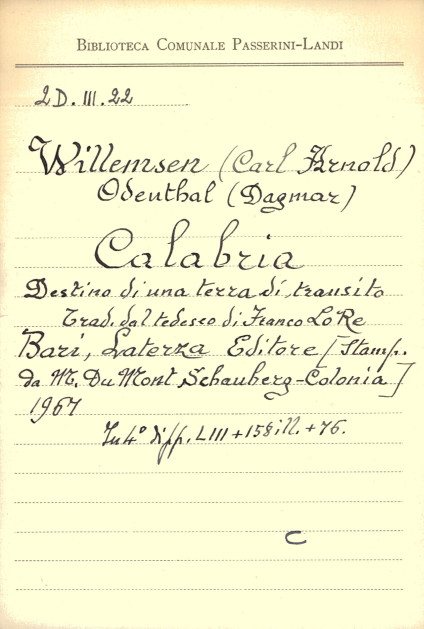 BIBLIOTECA COMUNALE PASSERINI-LANDI
2D.III.22
Willemsen (Carl Arnold)
Odenthal (Dagmar)
Calabria
Destino di una terra di transito
Trad. dal tedesco di Franco Lo Re
Bari, Laterza Editore [Stamp.
da M. Du Mont Schauberg-Colonia]
1967
In 4° di pp. LIII+158 ill.+76.
C